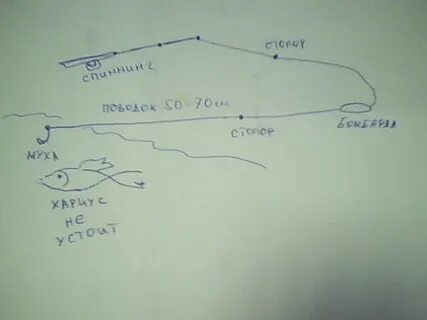 СТОПОР
СПИННИНГ
ПОВОДОК 50-70см
БОМБАРДА
СТОПОР
МУХА
ХАРИУС
НЕ
УСТОИТ